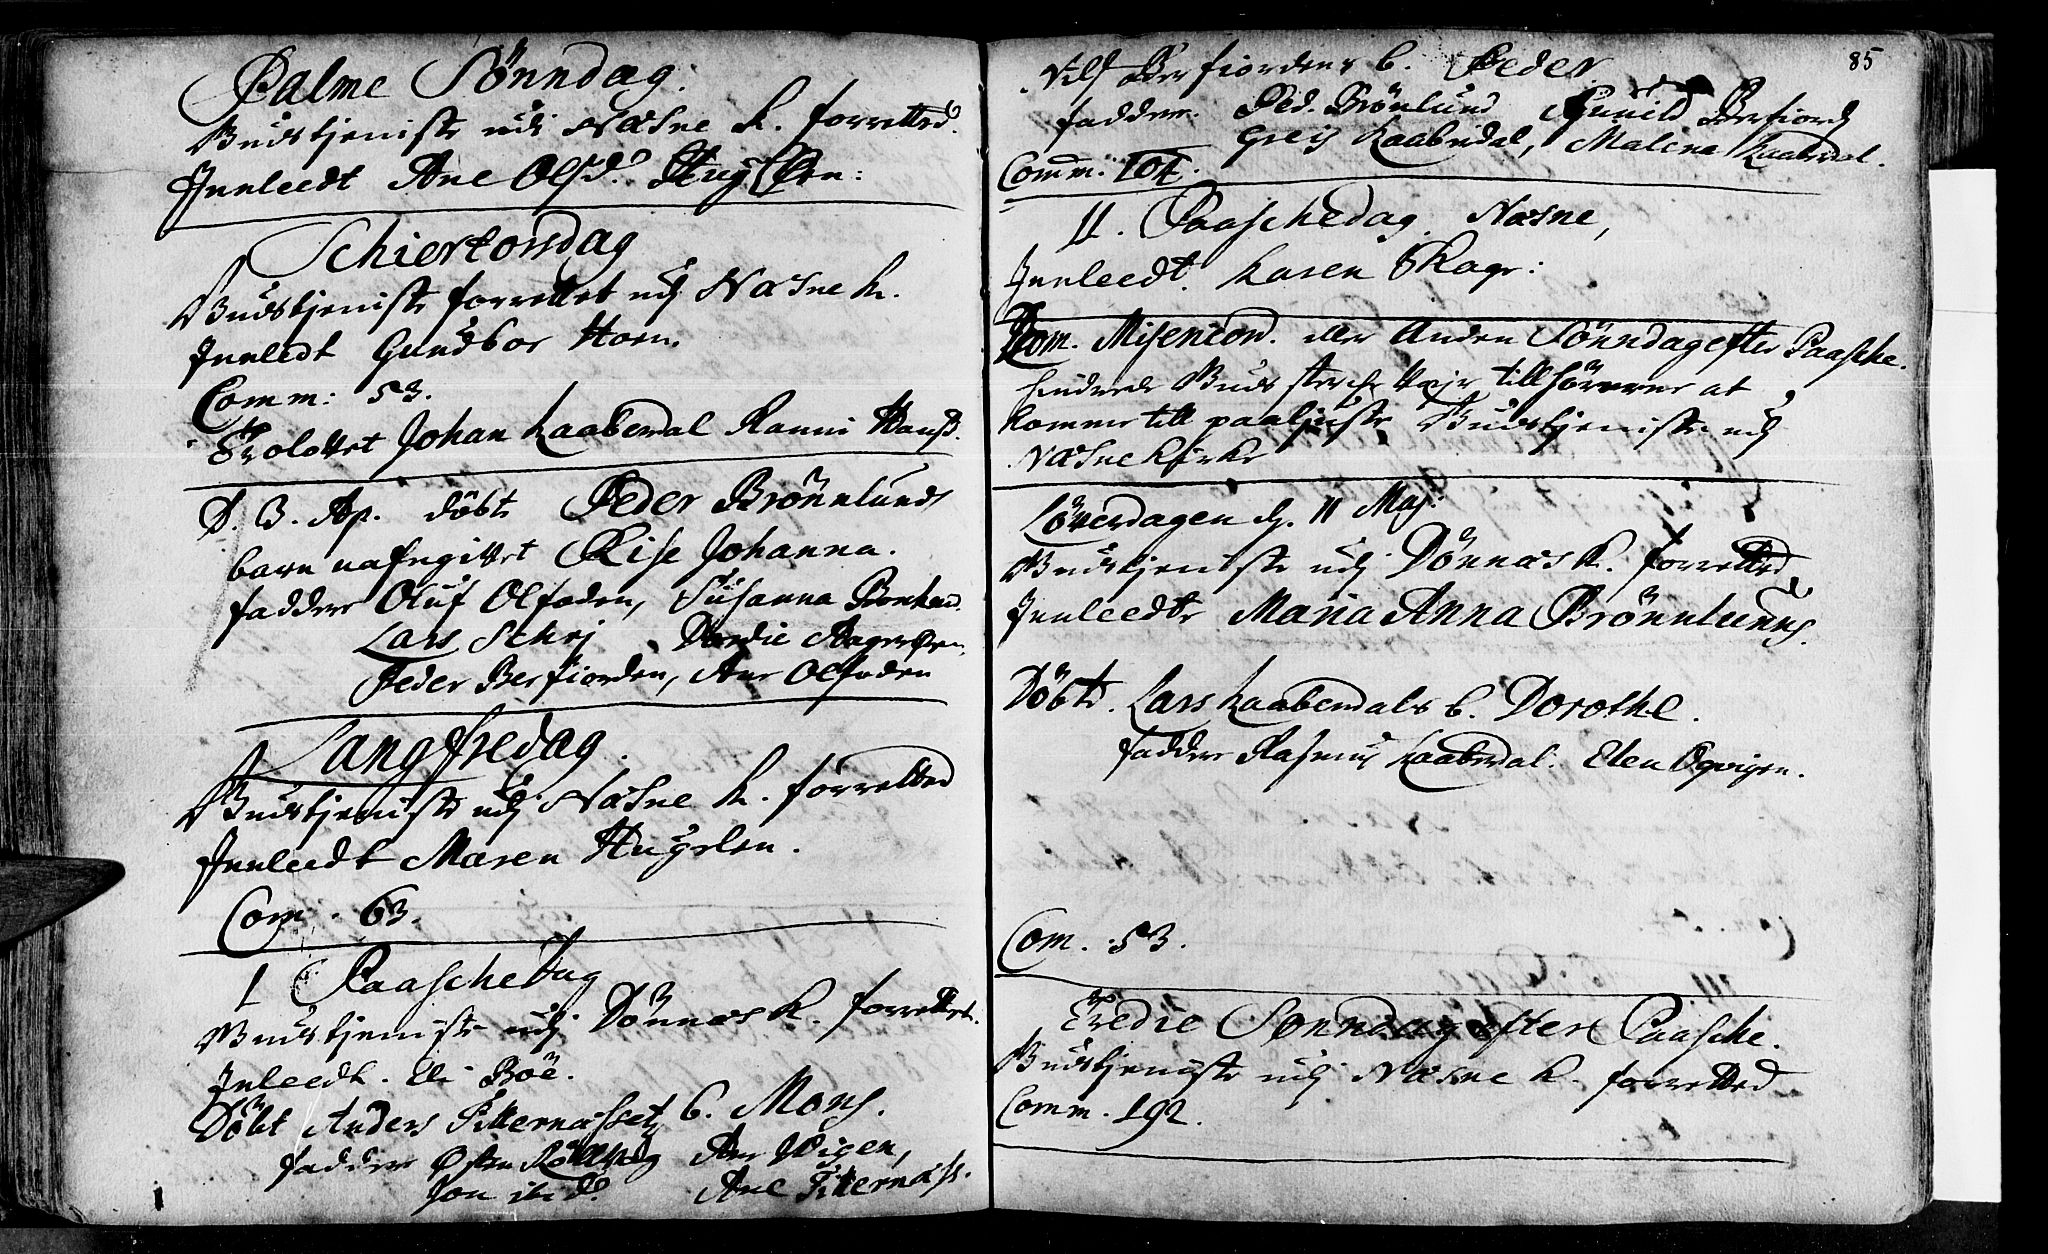 Palme Sönndag.
Gudstjeniste udj Næsne K. forretted.
Innleedt Ane Olsd.
Schiertorsdag
Gudstjeniste forrettet udj Næsne K.
Innledt Gundbor Horn.
Comm: 53.
Troloffvet Johan Kaaberdal Ranni Hansd.
D. 3. Ap. döbt Peder Brönnlunds
barn nafngivet Else Johanna.
faddere Oluf Olfoden, Susanna
Lars Schej Dordie
Peder Berfiorden, Ane Olfoden
Langfredag.
Gudstjeniste udj Næsne K. forretted
Innleedt Maren Hugelen.
Com. 63.
1 Paaschedag
Gudstjeniste udj Dönnæs K. forrettet.
Inleedt. Eli Böe.
Döbt Anders Titternæssets b. Mons.
faddere Østen Ane Vigen,
Jon ibid. Ane Titternæss.
85
Nils Berfiordens b. Peder
fadder. Ped. Brönlund Gunild Berfiord
Greis Kaaberdal, Malena Kaaberdal.
Comm. 104.
II. Paaschedag. Næsne,
Innleedt. Karen Skage:
Dom. Misericord. eller Anden Sönndag efter Paasche.
hindrede Gud tillhörerne at
komme till paaliuste Gudstjeniste udj
Næsne Kirke
Löverdagen d. 11 Maj.
Gudstjeniste udj Dönnæs K. forretted
Innleedte Maria Anna Brönnlunds.
Döbtd. Lars Kaaberdals b. Dorothe.
faddere Rasmus Kaaberdal. Elen
Com. 53.
Tredie Sonndag efter Paasche.
Gudstjeniste udj Næsne K. forretted
Comm. 192.